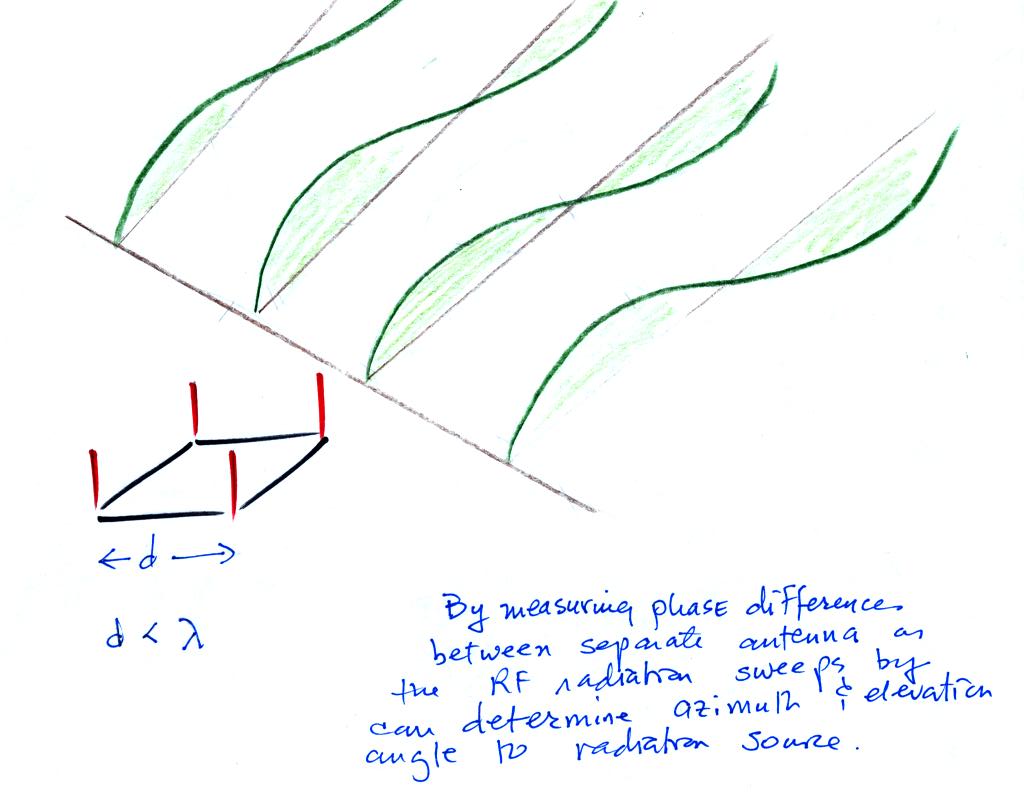 ← d →
d < λ
By measuring phase differences
between separate antenna as
the RF radiation sweeps by
can determine azimuth & elevation
angle to radiation source.